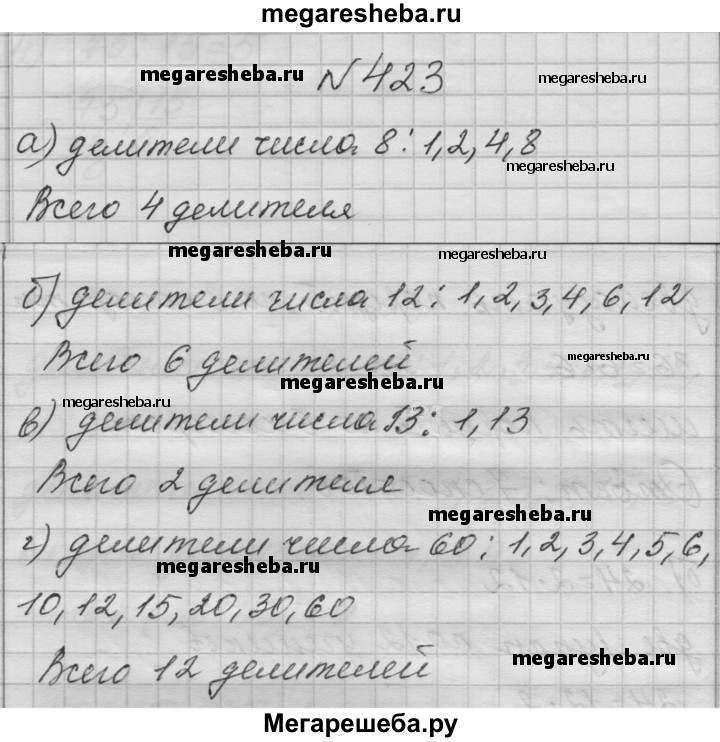 megaresheba.ru
megaresheba.ru № 423 megaresheba.ru
а) делители числа 8: 1,2,4,8
megaresheba.ru
Всего 4 делителя
megaresheba.ru megaresheba.ru
б) делители числа 12: 1,2,3,4,6,12
Всего 6 делителей megaresheba.ru
megaresheba.ru
megaresheba.ru
в) делители числа 13: 1,13
Всего 2 делителя
megaresheba.ru
г) делители числа 60: 1,2,3,4,5,6,
megaresheba.ru
10,12,15,20,30,60
Всего 12 делителей megaresheba.ru
Мегарешеба.ру